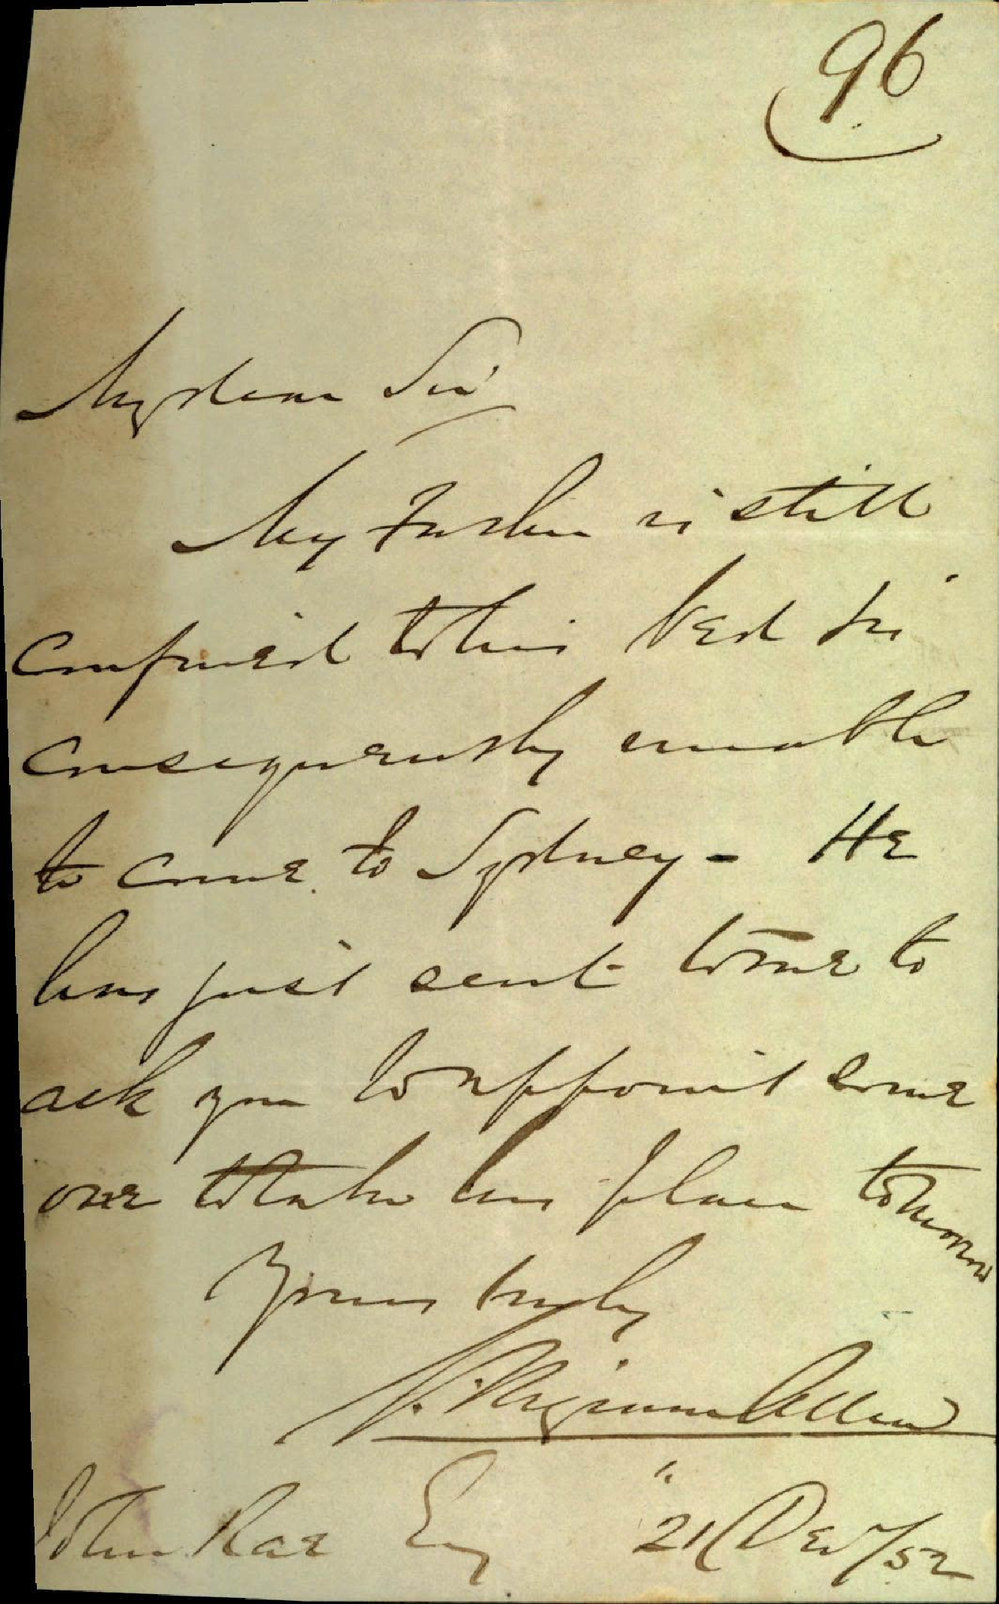 96
My dear Sir
My Father is still
confined to his bed &
consequently unable
to come to Sydney - He
has just sent to me to
ask you to appoint some
one to take his place tomorrow
Yours truly
Wigram Allen
John Rae Esq 21 Decr/52